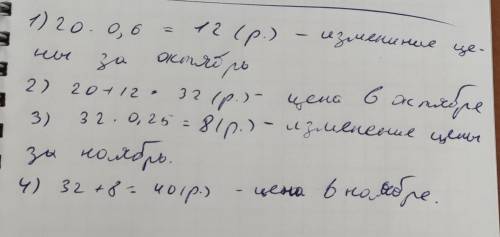 1) 20 · 0,6 = 12 (р.) - измениние це-
ны за октябрь
2) 20+12 = 32 (р.) - цена в октябре
3) 32 · 0,25 = 8 (р.) - изменение цены
за ноябрь.
4) 32 + 8 = 40 (р.) - цена в ноябре.